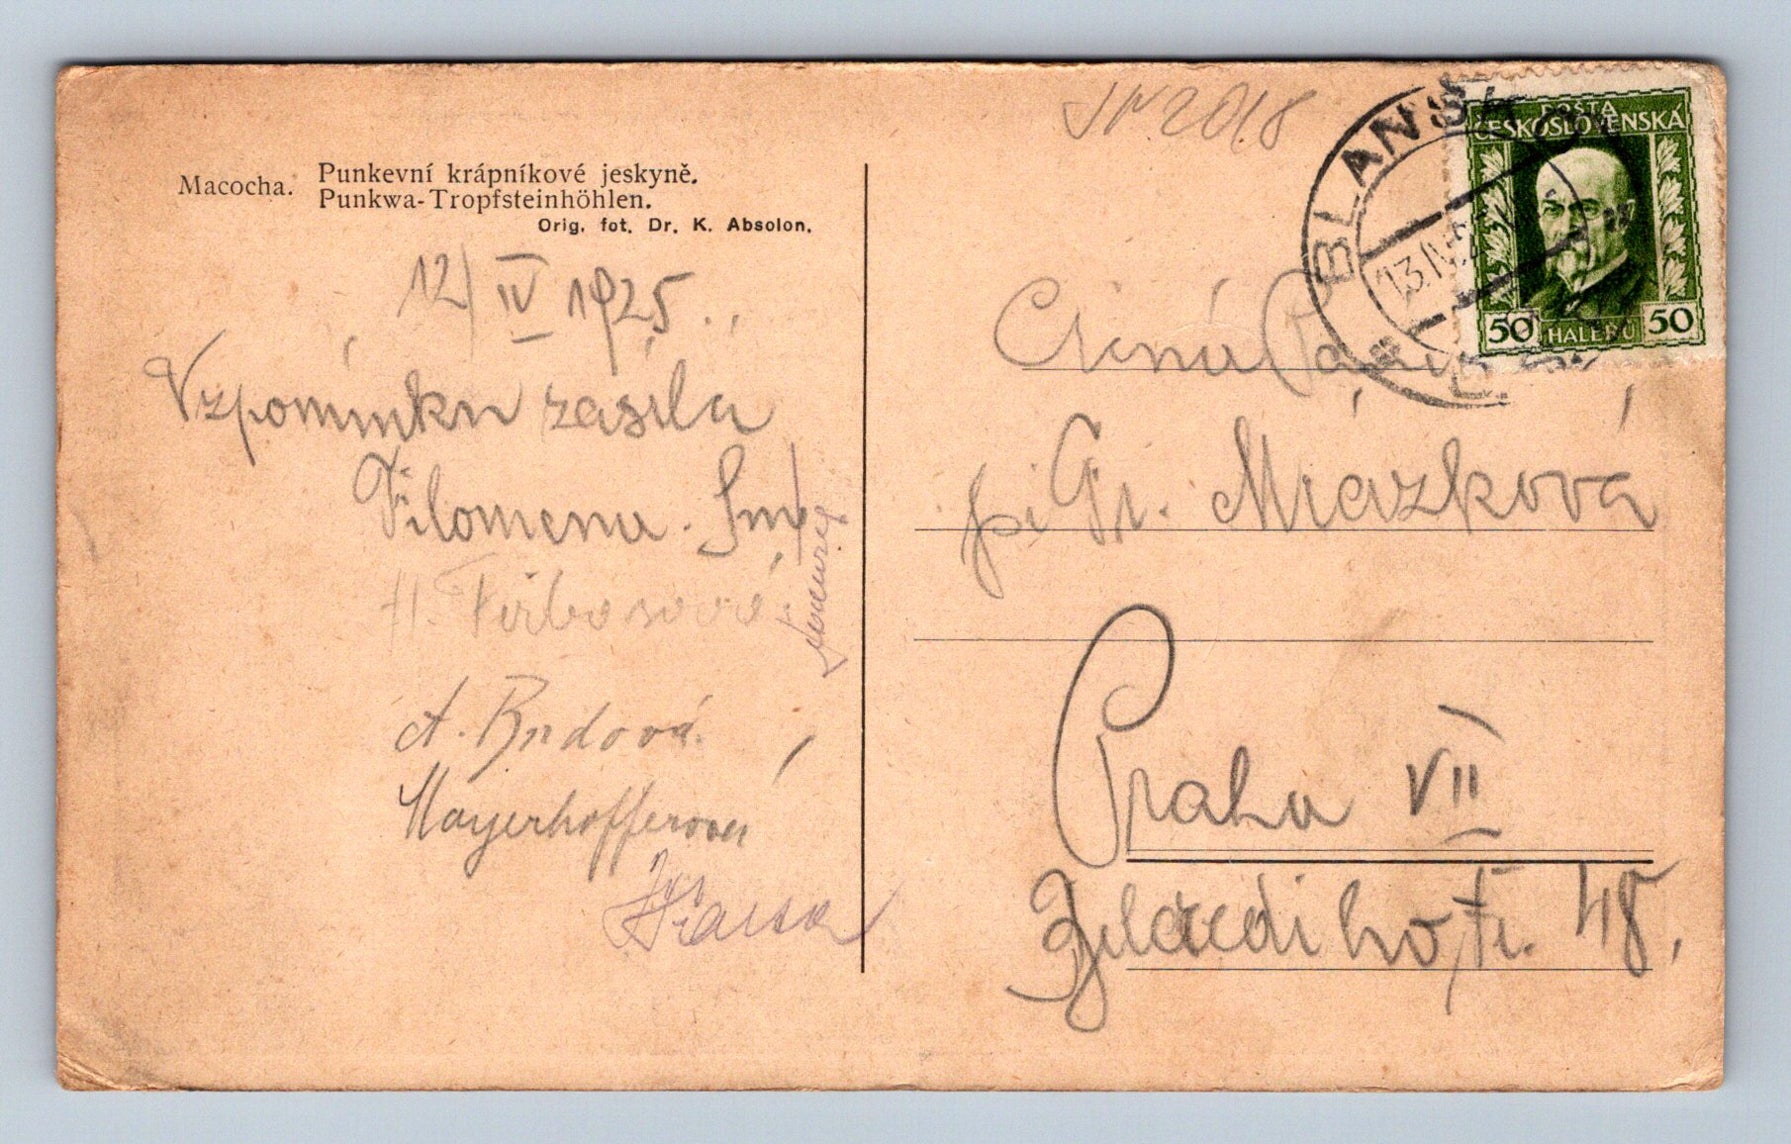 Macocha.
Punkevní krápníkové jeskyně.
Punkwa-Tropfsteinhöhlen.
Orig. fot. Dr. K. Absolon.
12/IV 1925.
Vzpomínku zasílá
Filomena.
A. Brdová.
Mayerhofferová
JN 2018
BLANSKO
13.IV.25
POŠTA
ČESKOSLOVENSKÁ
50 HALÉŘŮ 50
Ctěná Paní
pí Gr. Mrázková
Praha VII
48.